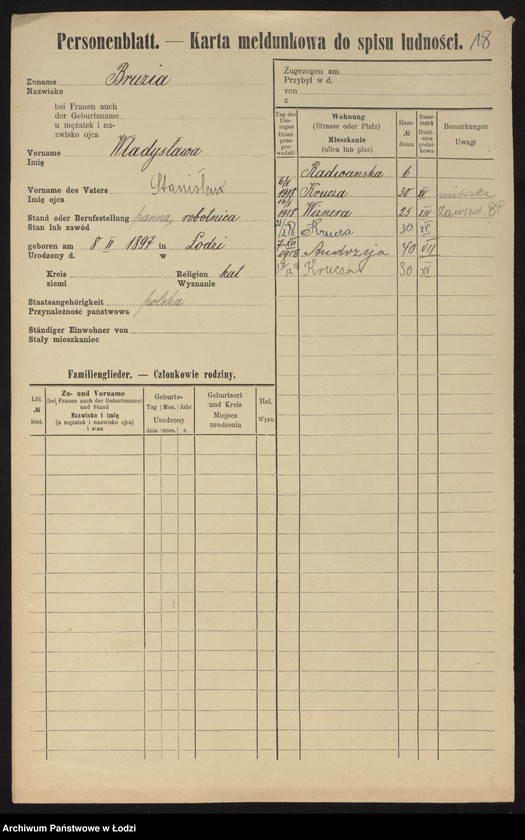 Personenblatt. — Karta meldunkowa do spisu ludności. 18
Zuname
Nazwisko
Bruzia
bei Frauen auch
der Geburtsname
u mężatek i na-
zwisko ojca
Vorname
Imię
Władysława
Vorname des Vaters
Imię ojca
Stanisław
Stand oder Berufsstellung panna, robotnica
Stan lub zawód
geboren am 8 II 1897 in Lodzi
Urodzony d. w
Kreis
ziemi
Religion kat
Wyznanie
Staatsangehörigkeit polska
Przynależność państwowa
Ständiger Einwohner von
Stały mieszkaniec
Zugezogen am
Przybył w d.
von
z
Tag des
Um-
zuges
Dzień
prze-
prowadzki
Wohnung
(Strasse oder Platz)
Mieszkanie
(ulica lub plac)
Haus-
№
domu
Bemerkungen
Uwagi
Radwańska 6
1918 Krucza 30 XV
1918 Wiznera 25 XIII
Krucza 30 XV
7 XII
1918 Andrzeja 40 VII
Krucza 30 XV
Familienglieder. — Członkowie rodziny.
Lfd.
№
bież.
Zu- und Vorname
(bei Frauen auch der Geburtsname)
und Stand
Nazwisko i imię
(u mężatek i nazwisko ojca)
i stan
Geburts-
Tag Mon. Jahr
Urodzony
dnia mies. r.
Geburtsort
und Kreis
Miejsce
urodzenia
Rel.
Wyzn.
Archiwum Państwowe w Łodzi